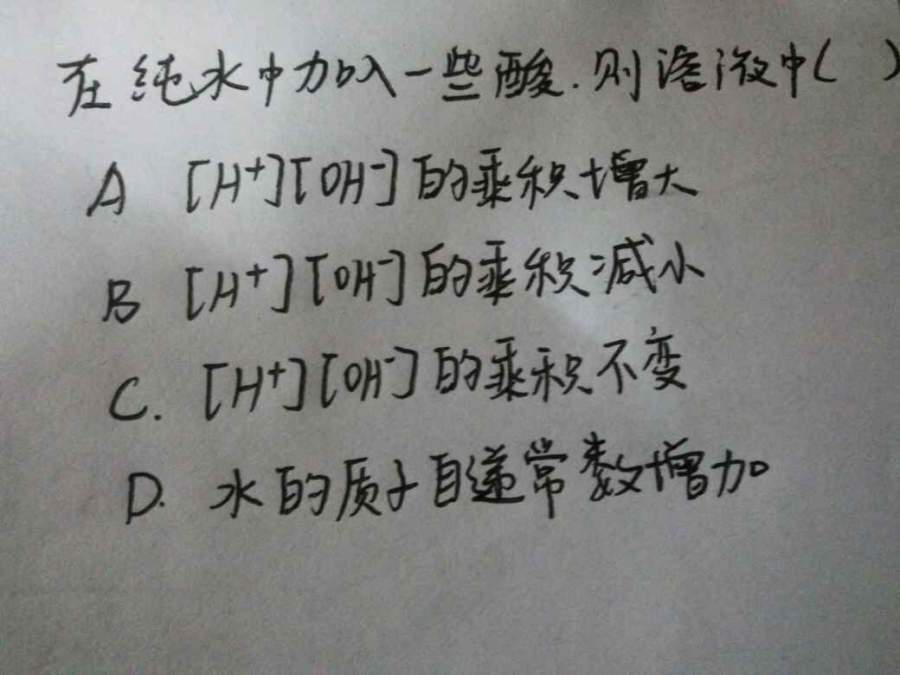 在纯水中加入一些酸.则溶液中( )
A [H⁺][OH⁻]的乘积增大
B [H⁺][OH⁻]的乘积减小
C. [H⁺][OH⁻]的乘积不变
D. 水的质子自递常数增加